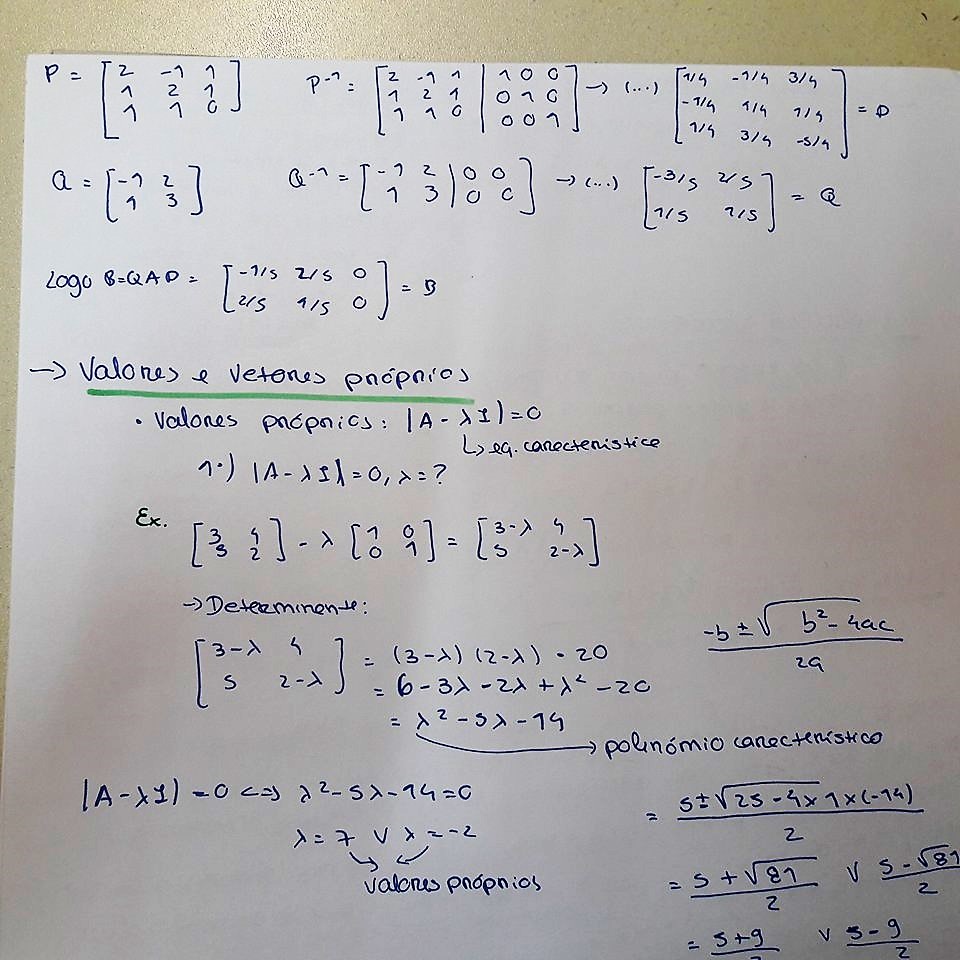 P = [2 -1 1; 1 2 1; 1 1 0] P⁻¹ = [2 -1 1 | 1 0 0; 1 2 1 | 0 1 0; 1 1 0 | 0 0 1] → (...) [1/4 -1/4 3/4; -1/4 1/4 1/4; 1/4 3/4 -5/4] = P
Q = [-1 2; 1 3] Q⁻¹ = [-1 2 | 0 0; 1 3 | 0 0] → (...) [-3/5 2/5; 1/5 1/5] = Q
Logo B=QAP = [-1/5 2/5 0; 2/5 1/5 0] = B
→ Valores e vetores próprios
• Valores próprios: |A - λI| = 0
↳ eq. característica
1º) |A - λI| = 0, λ = ?
Ex. [3 4; 5 2] - λ [1 0; 0 1] = [3-λ 4; 5 2-λ]
→ Determinante:
[3-λ 4; 5 2-λ] = (3-λ)(2-λ) - 20
= 6 - 3λ - 2λ + λ² - 20
= λ² - 5λ - 14
→ polinómio característico
(-b ± √(b² - 4ac))/2a
|A - λI| = 0 <=> λ² - 5λ - 14 = 0
λ = 7 ∨ λ = -2
valores próprios
= (5 ± √(25 - 4×1×(-14)))/2
= (5 + √81)/2 ∨ (5 - √81)/2
= (5+9)/2 ∨ (5-9)/2